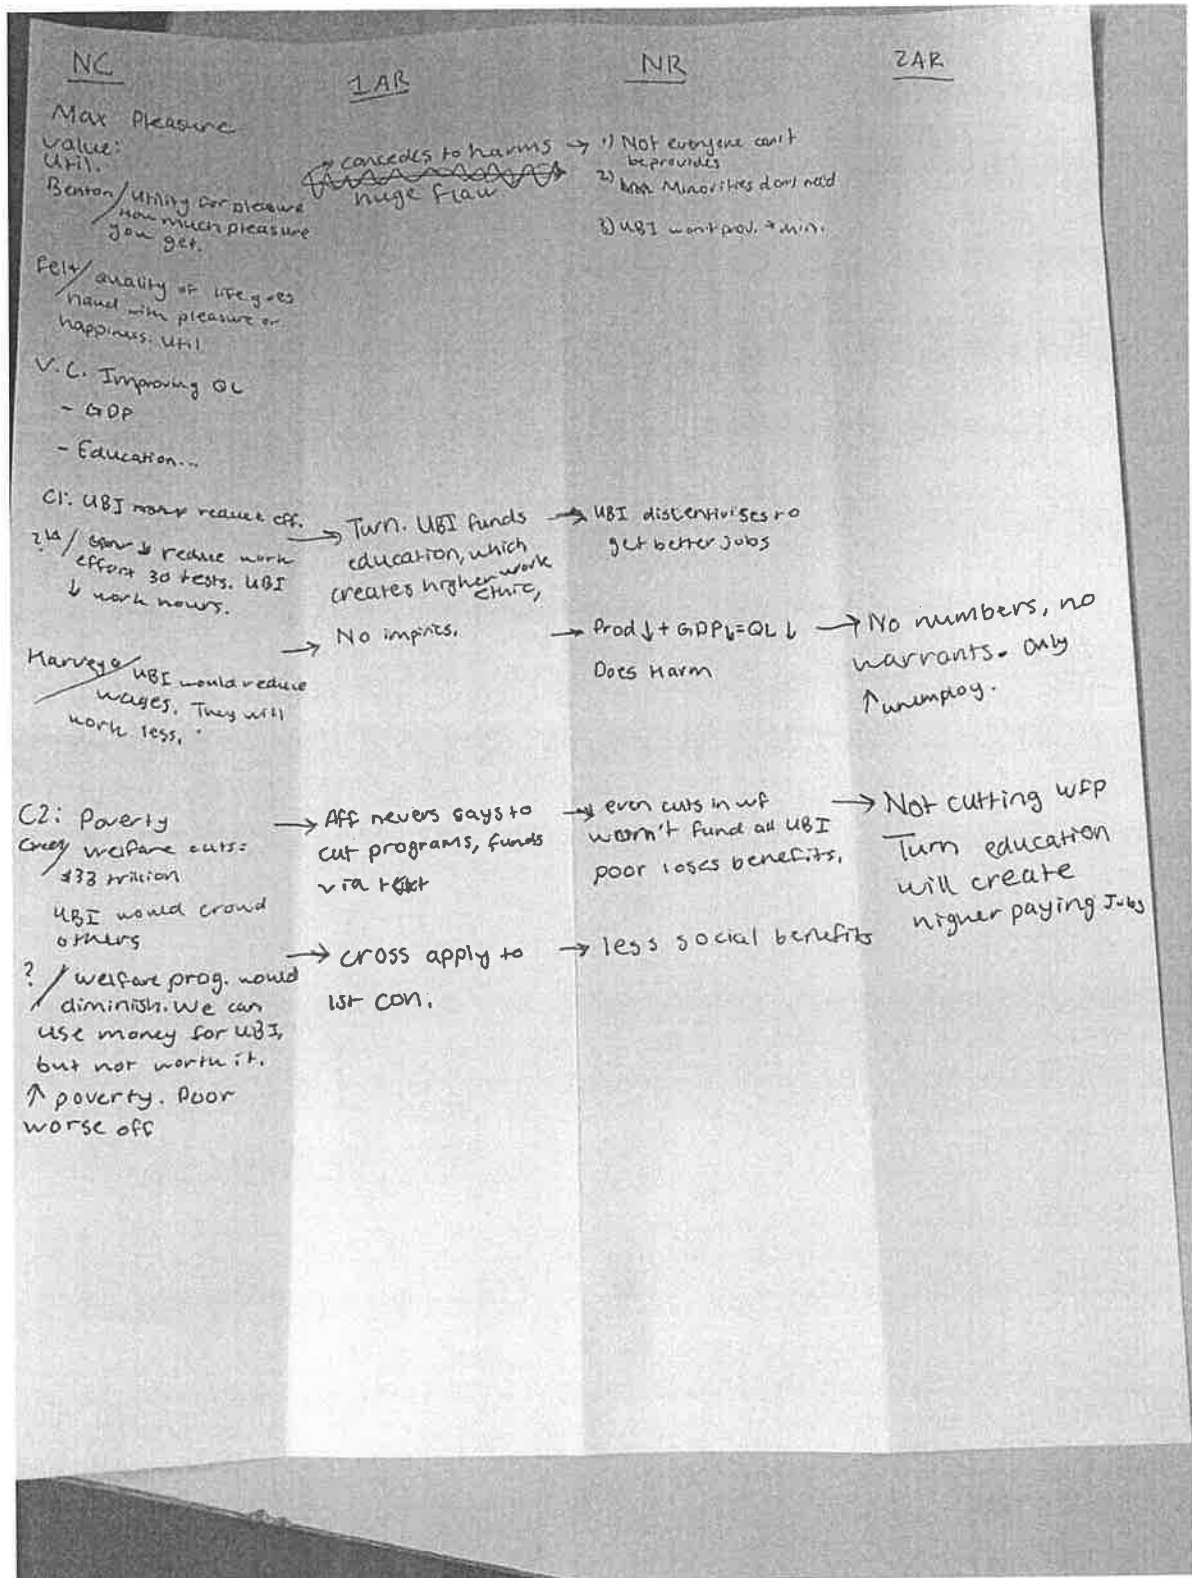 NC
Max Pleasure
value:
Util.
Benton/ Utility for pleasure
How much pleasure
you get.
Felt/ quality of life goes
hand with pleasure or
happiness. Util
V.C. Improving QL
- GDP
- Education...
C1: UBI reduce eff.
reduce work
effort 30 tests. UBI
↓ work hours.
UBI would reduce
wages. They will
work less.
C2: Poverty
welfare cuts=
$33 trillion
UBI would crowd
others
? / welfare prog. would
diminish. We can
use money for UBI,
but not worth it.
↑ poverty. Poor
worse off
1AR
→ concedes to harms →
huge flaw.
→ Turn. UBI funds
education, which
creates higher work
ethic,
→ No impircs.
→ Aff nevers says to
cut programs, funds
via
→ cross apply to
1st con.
NR
1) Not everyone can't
be provides
2) Minorities don't need
3) UBI won't prov. → min.
→ UBI disIentivises to
get better jobs
→ Prod ↓ + GDP↓ = QL ↓
Does Harm
→ even cuts in wf
won't fund all UBI
poor loses benefits.
→ less social benefits
2AR
→ No numbers, no
warrants. Only
↑ unemploy.
→ Not cutting wfp
Turn education
will create
higher paying Jobs